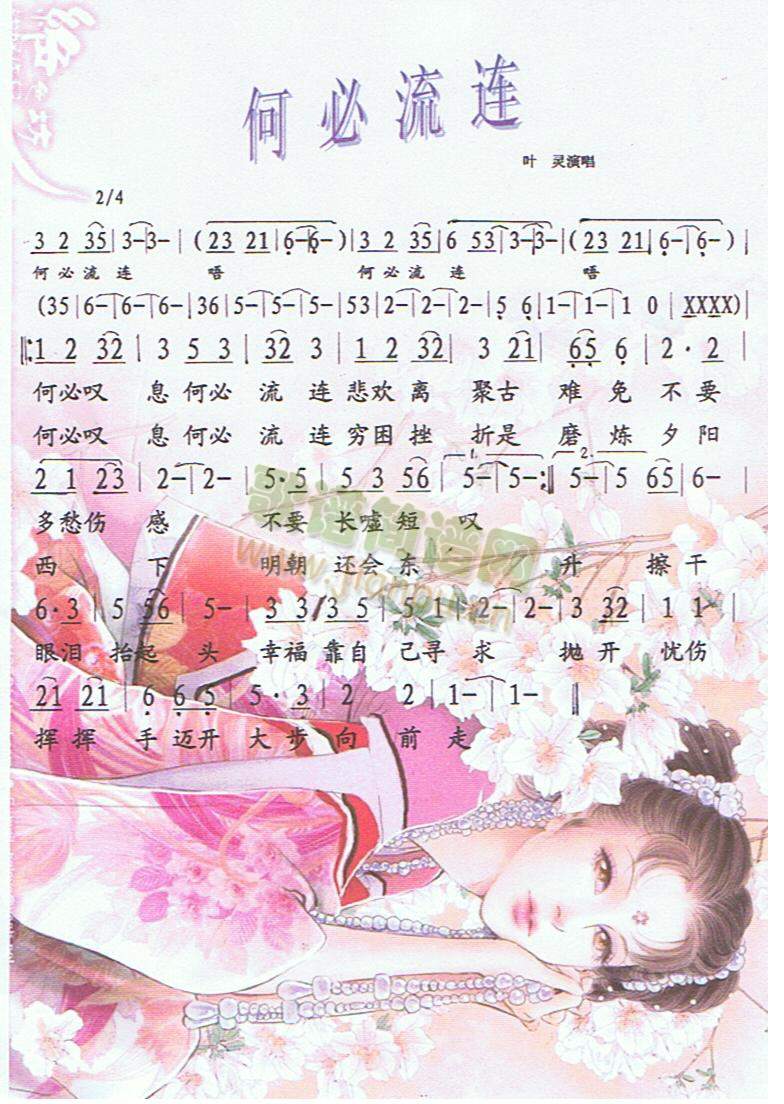 何必流连
叶 灵演唱
2/4
3 2 35|3-3-|(23 21|6-6-)|3 2 35|6 53|3-3-|(23 21|6-6-)|
何必流连 唔 何必流连 唔
(35|6-6-6-|36|5-5-5-|53|2-2-2-|5 6|1-1-1 0|XXXX)|
‖:1 2 32|3 5 3|32 3|1 2 32|3 21|65 6|2·2|
何必叹 息何必 流 连悲欢离 聚古 难免不要
何必叹 息何必 流 连穷困挫 折是 磨炼夕阳
2 1 23|2-2-|5·5|5 3 56|5-5-:‖5-5 65|6-|
1. 2.
多愁伤 感 不要长嘘短 叹
西 下 明朝还会东 升 擦干
6·3|5 56|5-|3 3/3 5|5 1|2-2-|3 32|1 1-|
眼泪抬起 头 幸福靠自 己寻求 抛开 忧伤
21 21|6 6 5|5·3|2 2|1-1-‖
挥挥 手迈开大步向 前走
歌谱简谱网